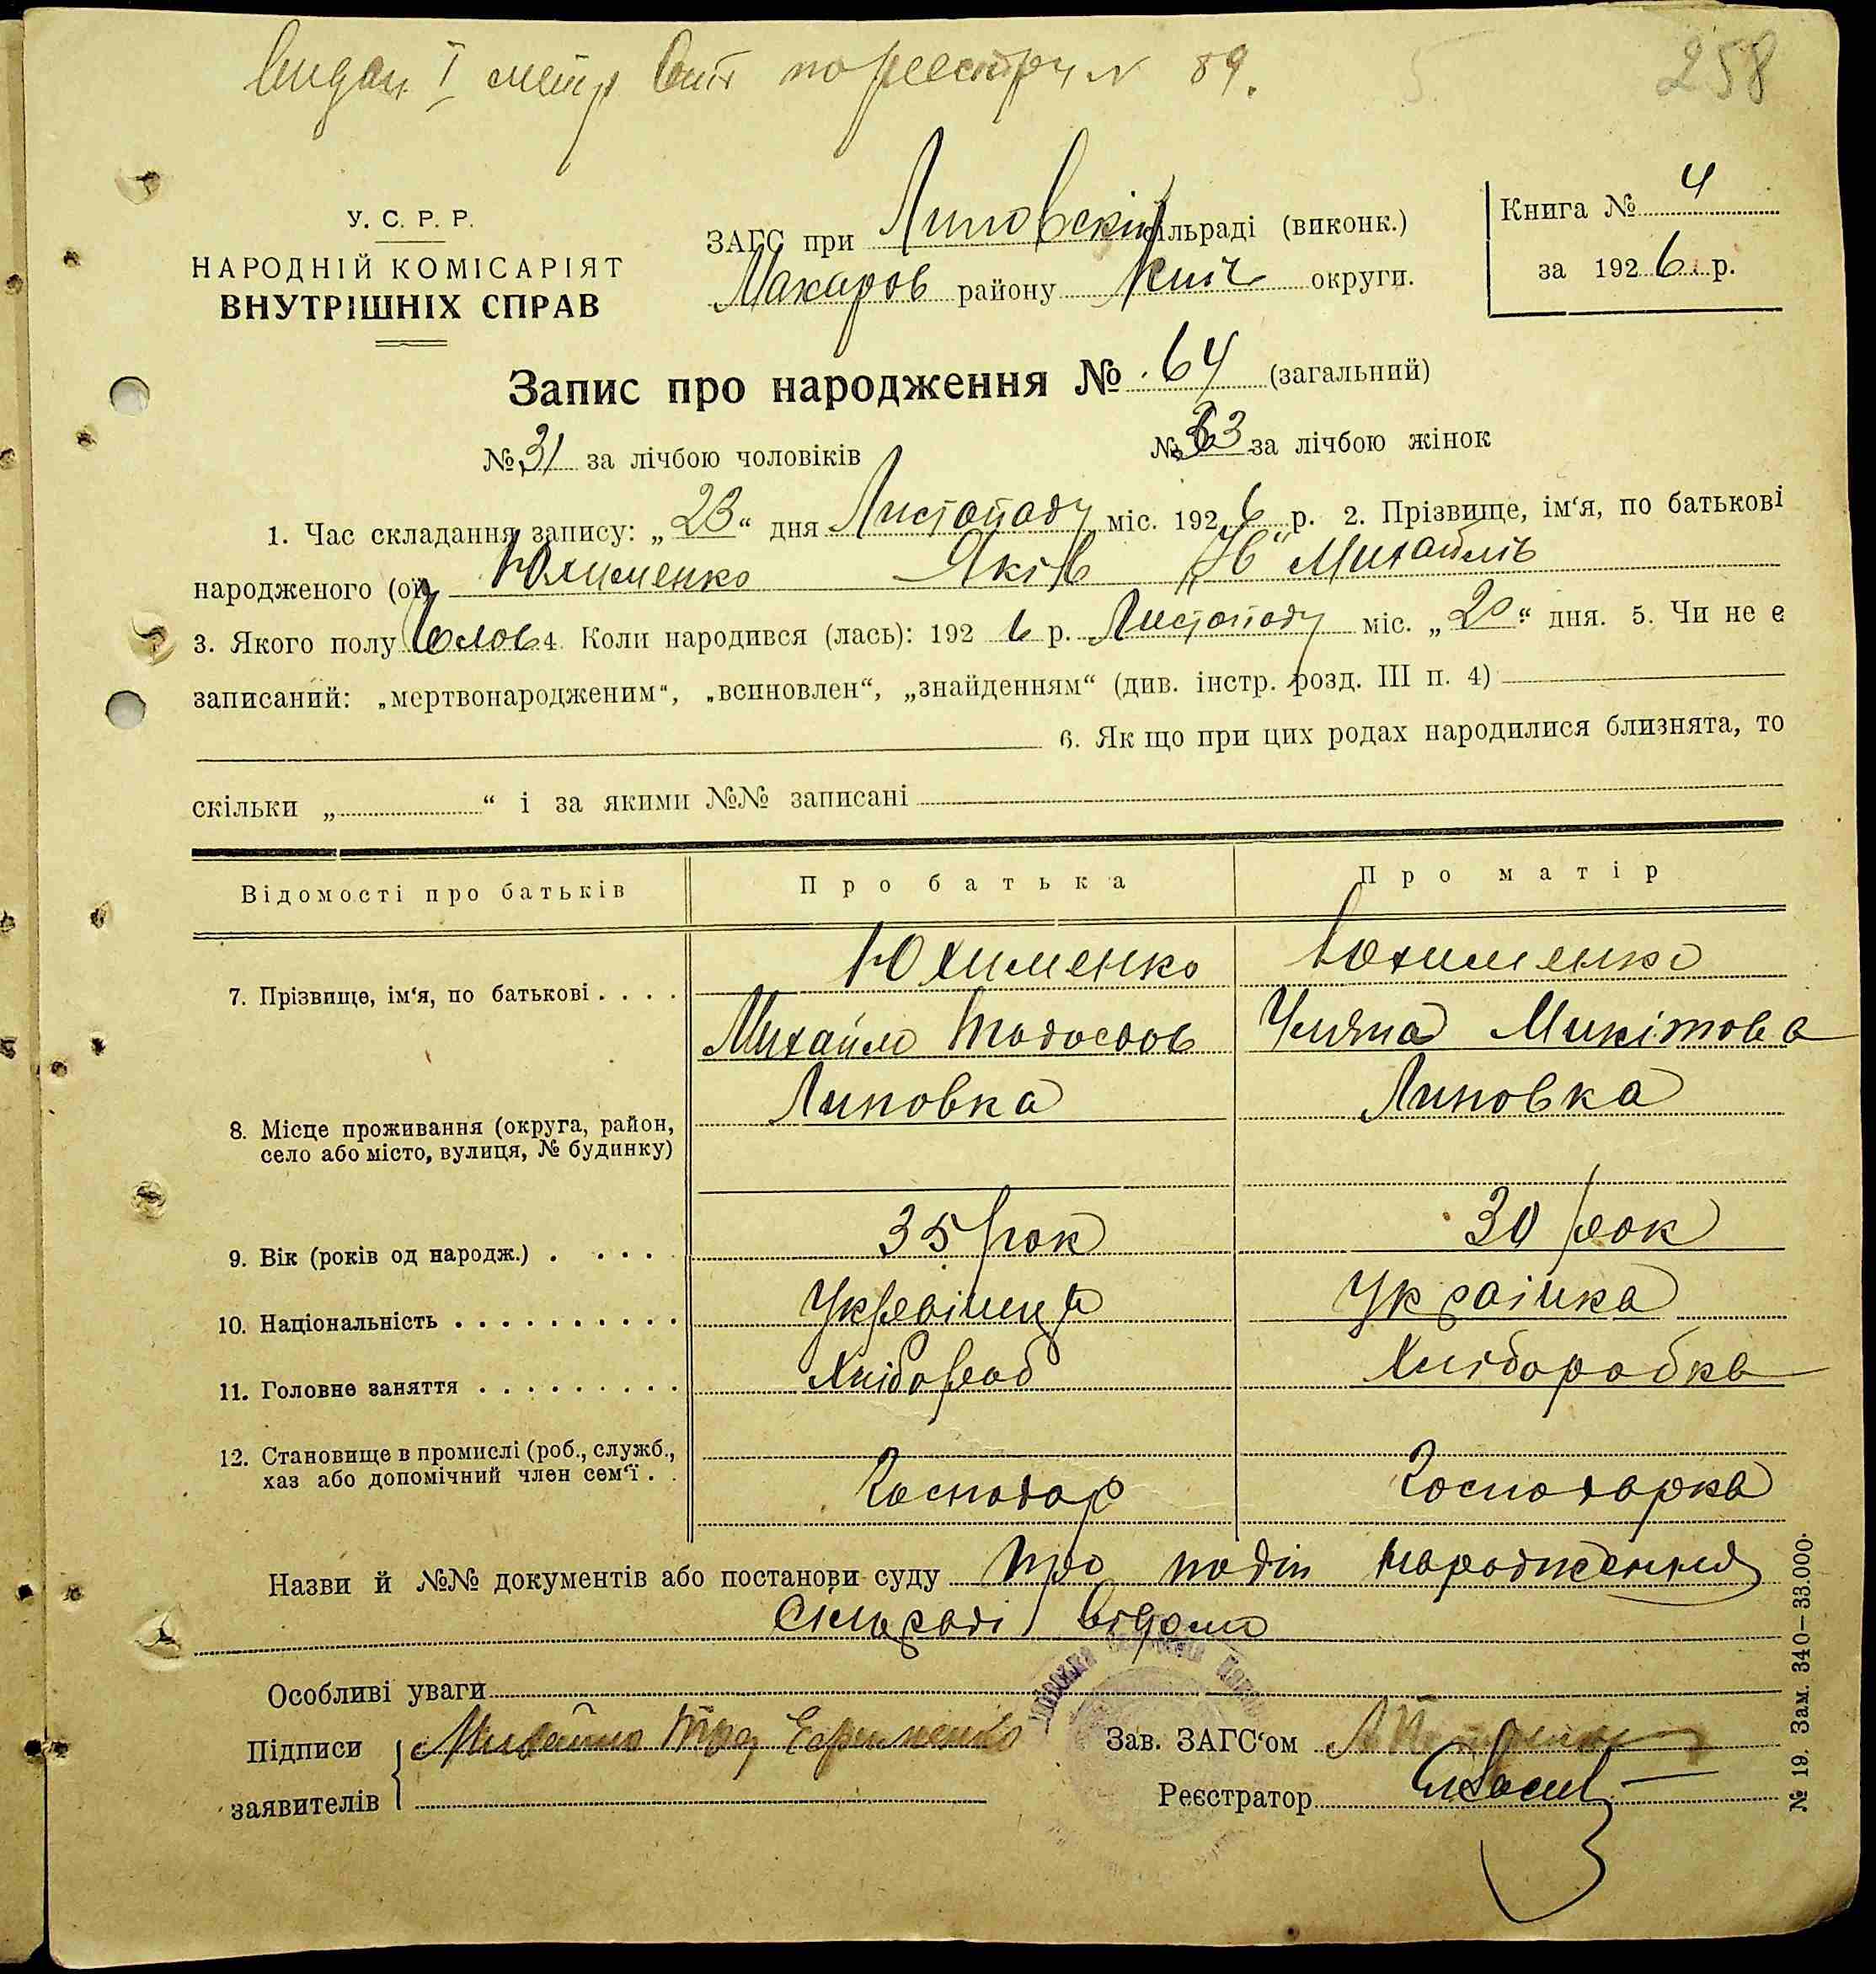 по реестру N 89.
258
У. С. Р. Р.
НАРОДНІЙ КОМІСАРІЯТ
ВНУТРІШНІХ СПРАВ
ЗАГС при Липовскій сільраді (виконк.)
Макаров району Київ округи.
Книга № 4
за 1926 р.
Запис про народження № 64 (загальний)
№ 31 за лічбою чоловіків № 33 за лічбою жінок
1. Час складання запису: „23“ дня Листопаду міс. 1926 р. 2. Прізвище, ім‘я, по батькові
народженого (ої) Юхименко Яків Михайлів
3. Якого полу Чолов 4. Коли народився (лась): 1926 р. Листопаду міс. „20“ дня. 5. Чи не є
записаний: „мертвонародженим“, „всиновлен“, „знайденням“ (див. інстр. розд. III п. 4)
6. Як що при цих родах народилися близнята, то
скільки „ “ і за якими №№ записані
Відомості про батьків Про батька Про матір
7. Прізвище, ім‘я, по батькові . . . . Юхименко Юхименко
Михайло Тодосьов Уляна Микітова
8. Місце проживання (округа, район, Липовка Липовка
село або місто, вулиця, № будинку)
9. Вік (років од народж.) . . . . 35 рок 30 рок
10. Національність . . . . . . . . . . Українец Українка
11. Головне заняття . . . . . . . . . Хлібороб Хліборобка
12. Становище в промислі (роб., служб.,
хаз або допомічний член сем‘ї . . Господар Господарка
Назви й №№ документів або постанови суду Про подію народження
Сильраді відомо
Особливі уваги
Підписи Михайло Ефименко Зав. ЗАГС‘ом
заявителів Реєстратор
№ 19. Зам. 340—33.000.